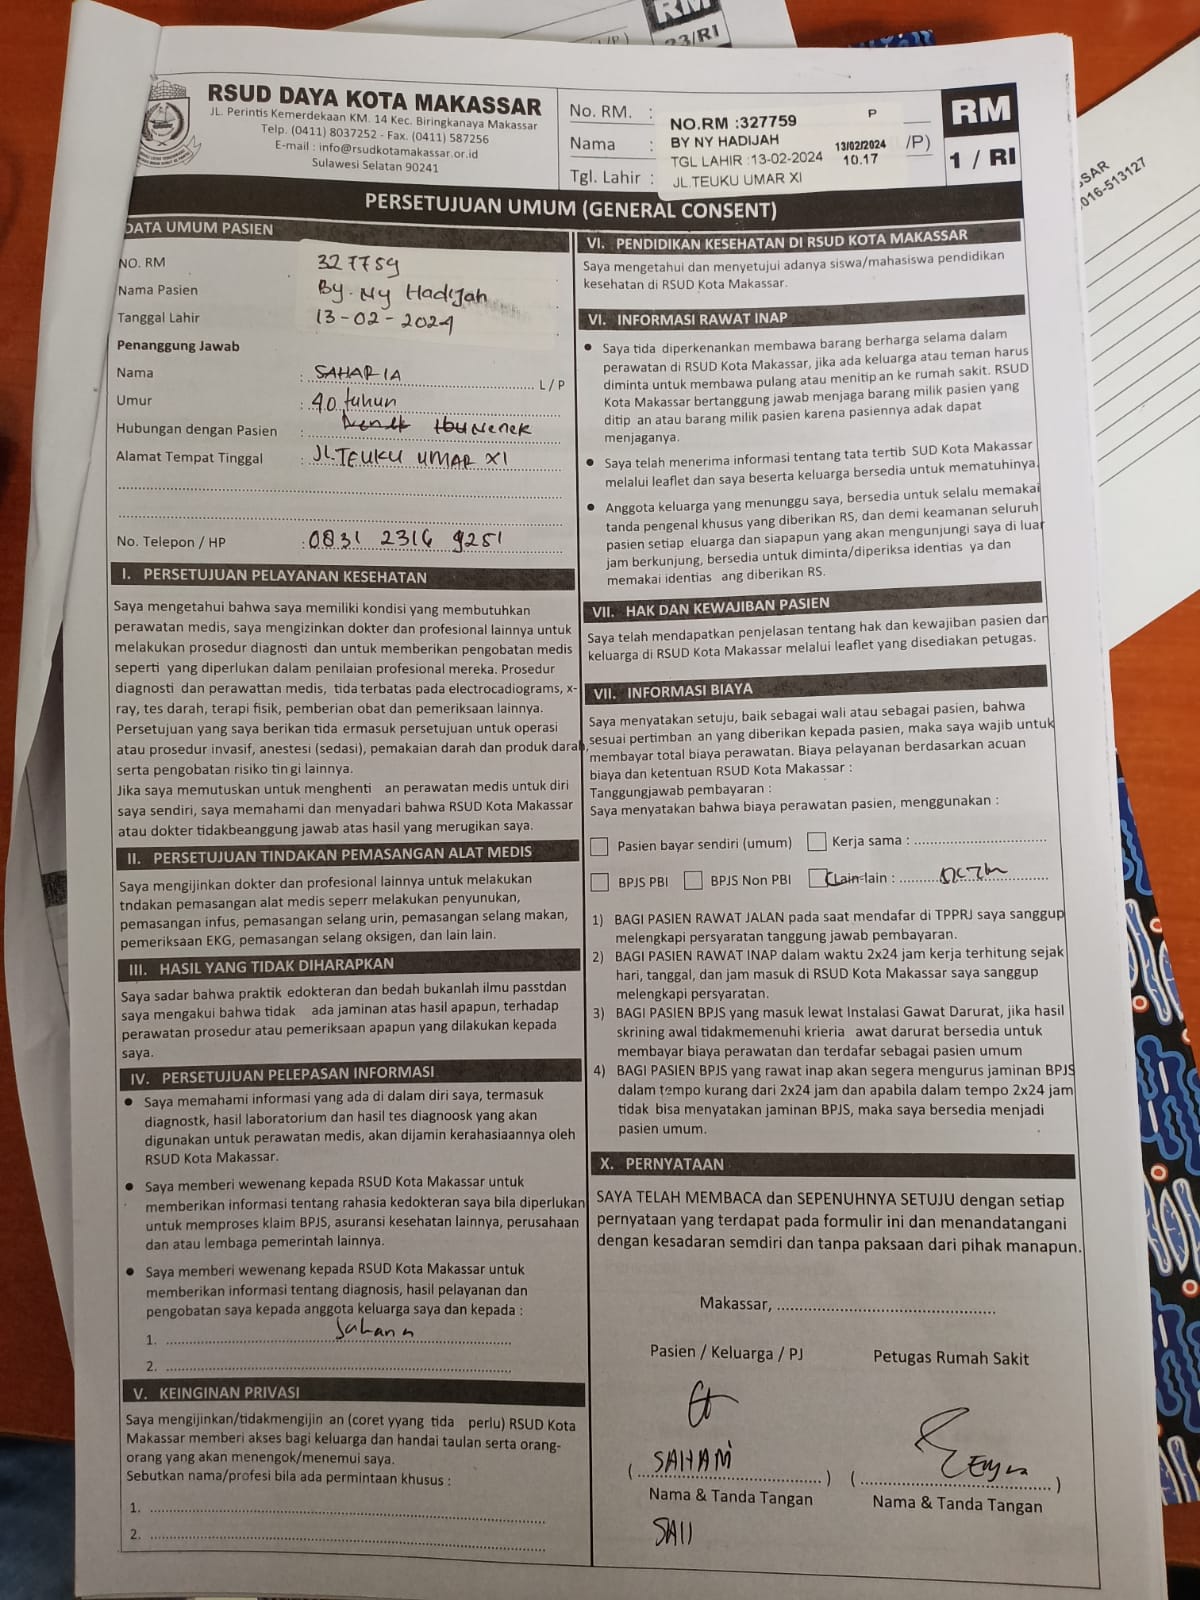 RM
23/RI
RSUD DAYA KOTA MAKASSAR
JL. Perintis Kemerdekaan KM. 14 Kec. Biringkanaya Makassar
Telp. (0411) 8037252 - Fax. (0411) 587256
E-mail : info@rsudkotamakassar.or.id
Sulawesi Selatan 90241
No. RM. :
Nama :
Tgl. Lahir :
NO.RM :327759 P
BY NY HADIJAH
TGL LAHIR :13-02-2024
JL.TEUKU UMAR XI
13/02/2024
10.17
/P)
RM
1 / RI
SSAR
016-513127
PERSETUJUAN UMUM (GENERAL CONSENT)
DATA UMUM PASIEN
NO. RM 327759
Nama Pasien By. Ny Hadijah
Tanggal Lahir 13-02-2024
Penanggung Jawab
Nama : SAHARIA L / P
Umur : 40 tahun
Hubungan dengan Pasien : Nenek
Alamat Tempat Tinggal : JL.TEUKU UMAR XI
No. Telepon / HP : 0831 2316 9251
I. PERSETUJUAN PELAYANAN KESEHATAN
Saya mengetahui bahwa saya memiliki kondisi yang membutuhkan
perawatan medis, saya mengizinkan dokter dan profesional lainnya untuk
melakukan prosedur diagnosti dan untuk memberikan pengobatan medis
seperti yang diperlukan dalam penilaian profesional mereka. Prosedur
diagnosti dan perawattan medis, tida terbatas pada electrocadiograms, x-
ray, tes darah, terapi fisik, pemberian obat dan pemeriksaan lainnya.
Persetujuan yang saya berikan tida ermasuk persetujuan untuk operasi
atau prosedur invasif, anestesi (sedasi), pemakaian darah dan produk darah,
serta pengobatan risiko tin gi lainnya.
Jika saya memutuskan untuk menghenti an perawatan medis untuk diri
saya sendiri, saya memahami dan menyadari bahwa RSUD Kota Makassar
atau dokter tidakbeanggung jawab atas hasil yang merugikan saya.
II. PERSETUJUAN TINDAKAN PEMASANGAN ALAT MEDIS
Saya mengijinkan dokter dan profesional lainnya untuk melakukan
tndakan pemasangan alat medis seperr melakukan penyunukan,
pemasangan infus, pemasangan selang urin, pemasangan selang makan,
pemeriksaan EKG, pemasangan selang oksigen, dan lain lain.
III. HASIL YANG TIDAK DIHARAPKAN
Saya sadar bahwa praktik edokteran dan bedah bukanlah ilmu passtdan
saya mengakui bahwa tidak ada jaminan atas hasil apapun, terhadap
perawatan prosedur atau pemeriksaan apapun yang dilakukan kepada
saya.
IV. PERSETUJUAN PELEPASAN INFORMASI
• Saya memahami informasi yang ada di dalam diri saya, termasuk
diagnostk, hasil laboratorium dan hasil tes diagnoosk yang akan
digunakan untuk perawatan medis, akan dijamin kerahasiaannya oleh
RSUD Kota Makassar.
• Saya memberi wewenang kepada RSUD Kota Makassar untuk
memberikan informasi tentang rahasia kedokteran saya bila diperlukan
untuk memproses klaim BPJS, asuransi kesehatan lainnya, perusahaan
dan atau lembaga pemerintah lainnya.
• Saya memberi wewenang kepada RSUD Kota Makassar untuk
memberikan informasi tentang diagnosis, hasil pelayanan dan
pengobatan saya kepada anggota keluarga saya dan kepada :
1.
2.
V. KEINGINAN PRIVASI
Saya mengijinkan/tidakmengijin an (coret yyang tida perlu) RSUD Kota
Makassar memberi akses bagi keluarga dan handai taulan serta orang-
orang yang akan menengok/menemui saya.
Sebutkan nama/profesi bila ada permintaan khusus :
1.
2.
VI. PENDIDIKAN KESEHATAN DI RSUD KOTA MAKASSAR
Saya mengetahui dan menyetujui adanya siswa/mahasiswa pendidikan
kesehatan di RSUD Kota Makassar.
VI. INFORMASI RAWAT INAP
• Saya tida diperkenankan membawa barang berharga selama dalam
perawatan di RSUD Kota Makassar, jika ada keluarga atau teman harus
diminta untuk membawa pulang atau menitip an ke rumah sakit. RSUD
Kota Makassar bertanggung jawab menjaga barang milik pasien yang
ditip an atau barang milik pasien karena pasiennya adak dapat
menjaganya.
• Saya telah menerima informasi tentang tata tertib SUD Kota Makassar
melalui leaflet dan saya beserta keluarga bersedia untuk mematuhinya.
• Anggota keluarga yang menunggu saya, bersedia untuk selalu memakai
tanda pengenal khusus yang diberikan RS, dan demi keamanan seluruh
pasien setiap eluarga dan siapapun yang akan mengunjungi saya di luar
jam berkunjung, bersedia untuk diminta/diperiksa identias ya dan
memakai identias ang diberikan RS.
VII. HAK DAN KEWAJIBAN PASIEN
Saya telah mendapatkan penjelasan tentang hak dan kewajiban pasien dan
keluarga di RSUD Kota Makassar melalui leaflet yang disediakan petugas.
VII. INFORMASI BIAYA
Saya menyatakan setuju, baik sebagai wali atau sebagai pasien, bahwa
sesuai pertimban an yang diberikan kepada pasien, maka saya wajib untuk
membayar total biaya perawatan. Biaya pelayanan berdasarkan acuan
biaya dan ketentuan RSUD Kota Makassar :
Tanggungjawab pembayaran :
Saya menyatakan bahwa biaya perawatan pasien, menggunakan :
Pasien bayar sendiri (umum) Kerja sama :
BPJS PBI BPJS Non PBI Lain-lain :
1) BAGI PASIEN RAWAT JALAN pada saat mendafar di TPPRJ saya sanggup
melengkapi persyaratan tanggung jawab pembayaran.
2) BAGI PASIEN RAWAT INAP dalam waktu 2x24 jam kerja terhitung sejak
hari, tanggal, dan jam masuk di RSUD Kota Makassar saya sanggup
melengkapi persyaratan.
3) BAGI PASIEN BPJS yang masuk lewat Instalasi Gawat Darurat, jika hasil
skrining awal tidakmemenuhi krieria awat darurat bersedia untuk
membayar biaya perawatan dan terdafar sebagai pasien umum
4) BAGI PASIEN BPJS yang rawat inap akan segera mengurus jaminan BPJS
dalam tempo kurang dari 2x24 jam dan apabila dalam tempo 2x24 jam
tidak bisa menyatakan jaminan BPJS, maka saya bersedia menjadi
pasien umum.
X. PERNYATAAN
SAYA TELAH MEMBACA dan SEPENUHNYA SETUJU dengan setiap
pernyataan yang terdapat pada formulir ini dan menandatangani
dengan kesadaran semdiri dan tanpa paksaan dari pihak manapun.
Makassar,
Pasien / Keluarga / PJ Petugas Rumah Sakit
( SAHARI ) ( )
Nama & Tanda Tangan Nama & Tanda Tangan